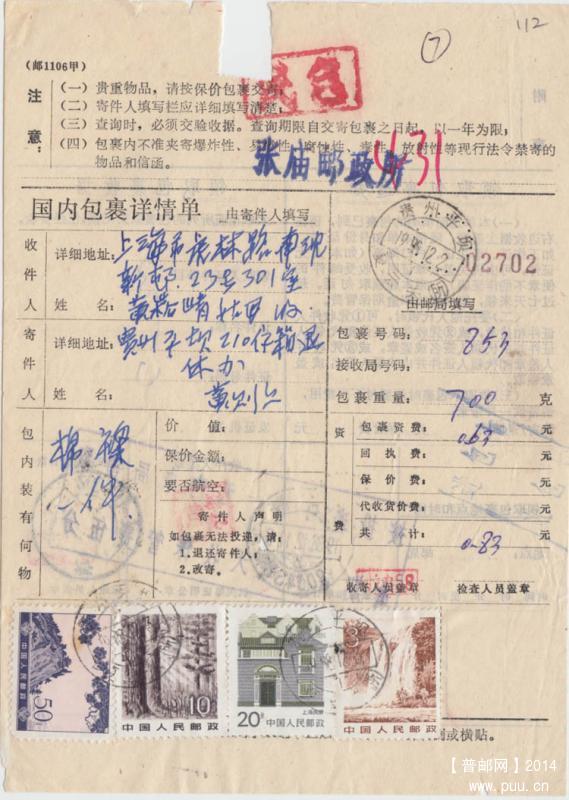 112
7
(邮1106甲)
注意：
(一) 贵重物品，请按保价包裹交寄；
(二) 寄件人填写栏应详细填写清楚；
(三) 查询时，必须交验收据。查询期限自交寄包裹之日起，以一年为限；
(四) 包裹内不准夹寄爆炸性、易燃性、腐蚀性、毒性、放射性等现行法令禁寄的
物品和信函。
张庙邮政所
431
国内包裹详情单 由寄件人填写
02702
由邮局填写
收件人
详细地址：上海市长林路南
新邨.23号301室
姓名：
寄件人
详细地址：贵州平坝210信箱退
休办
姓名：
包裹号码： 853
接收局号码：
包裹重量： 700 克
资费
包裹资费： 0.63 元
回执费： 元
保价费： 元
代收货价费： 元
共计： 0.83 元
包内装有何物
棉
价值：
保价金额：
要否航空：
寄件人声明
如包裹无法投递，请：
1.退还寄件人；
2.改寄。
收寄人员盖章 检查人员盖章
50
中国人民邮政
10
中国人民邮政
20分
上海民居
中国人民邮政
3
中国人民邮政
或横贴。
【普邮网】2014
www.puu.cn